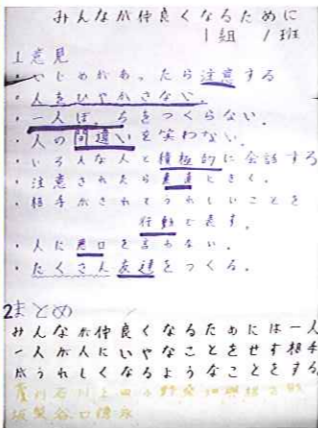 みんなが仲良くなるために
1組 1班
1意見
・いじめがあったら注意する
・人をひやかさない。
・一人ぼっちをつくらない。
・人の間違いを笑わない。
・いろんな人と積極的に会話する
・注意されたら素直にきく。
・相手がされてうれしいことを
行動で表す。
・人に悪口を言わない。
・たくさん友達をつくる。
2まとめ
みんなが仲良くなるためには一人
一人が人にいやなことをせず相手
がうれしくなるようなことをする